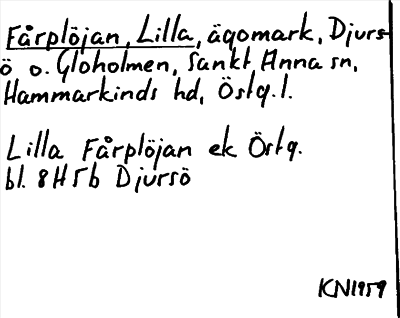 Fårplöjan, Lilla, ägomark, Djurs-
ö o. Gloholmen, Sankt Anna sn,
Hammarkinds hd, Östg.l.
Lilla Fårplöjan ek Östg.
bl. 8H5b Djursö
KN1959